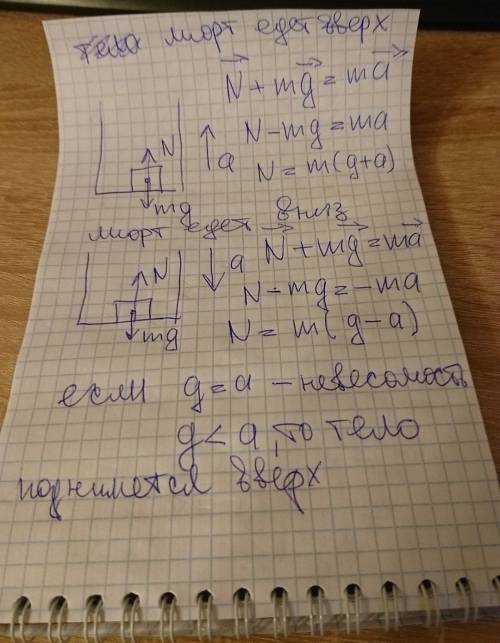 лифт едет вверх
N⃗ + mg⃗ = ma⃗
N - mg = ma
N = m(g+a)
N
a
mg
лифт едет вниз
N⃗ + mg⃗ = ma⃗
N - mg = -ma
N = m(g-a)
N
a
mg
если g = a - невесомость
g < a, то тело
поднимется вверх